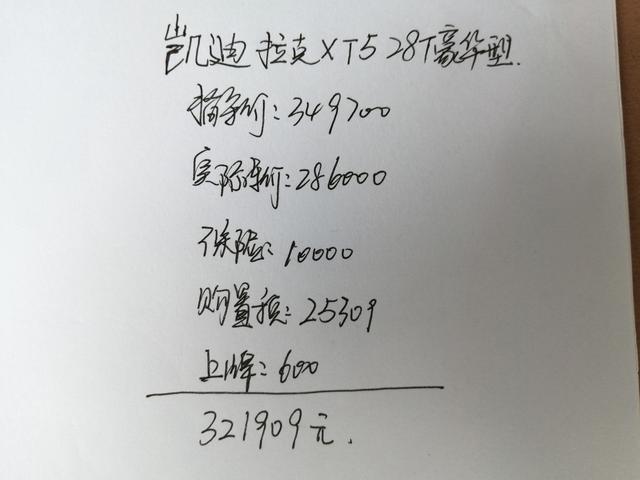 凯迪拉克XT5 28T豪华型.
指导价:349700
实际车价:286000
保险:10000
购置税:25309
上牌:600
321909元.